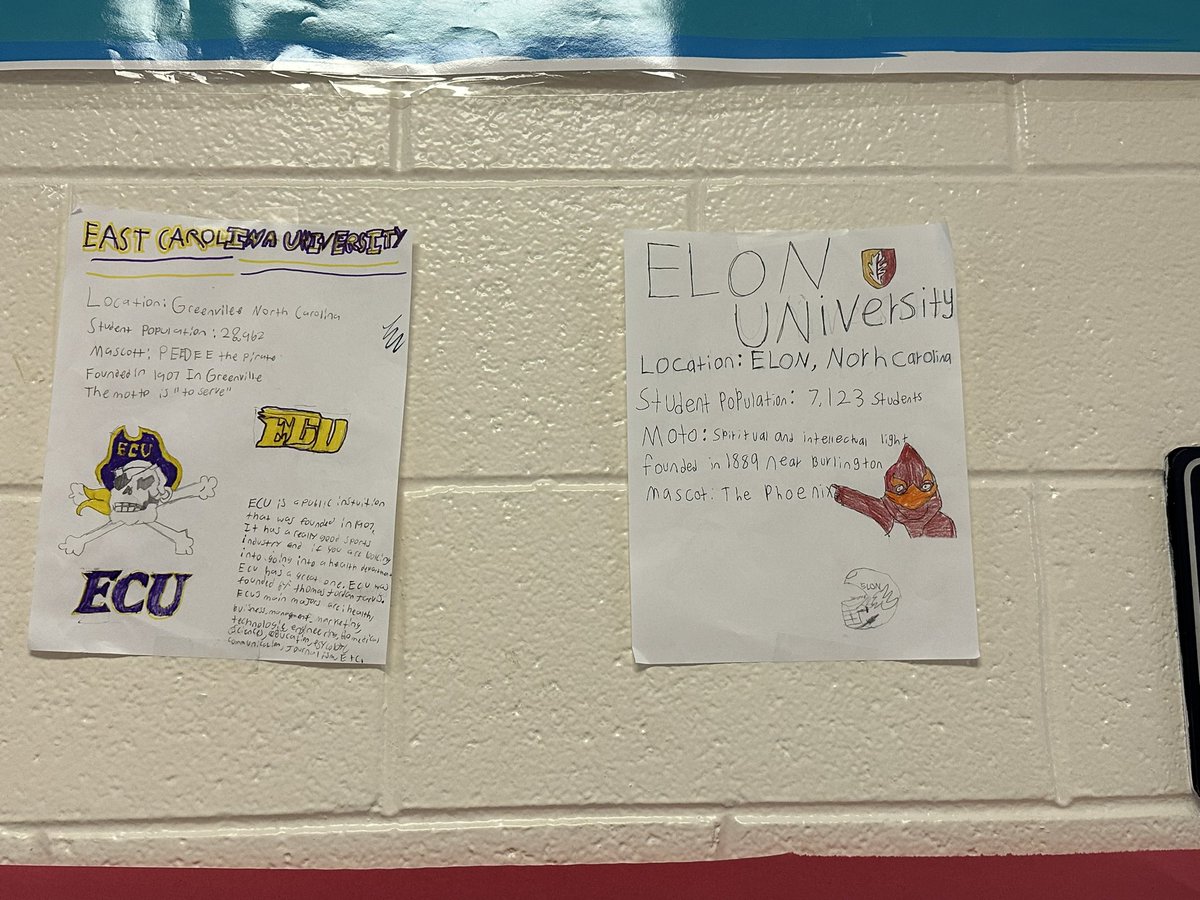 EAST CAROLINA UNIVERSITY
Location: Greenville North Carolina
Student Population: 28,962
Mascott: PEEDEE the pirate
Founded in 1907 In Greenville
The motto is "to serve"
ECU
ECU
ECU
ECU is a public
that was founded in 1907.
It has a really good sports
industry and if you are
into going into a health
ECU has a great one. ECU was
founded by thomas Jordan Jarvis.
ECU's main majors are: health,
marketing,
engineering,
ETC.
ELON
UNiversity
Location: ELON, North carolina
Student Population: 7,123 students
Moto: Spiritual and intellectual light
founded in 1889 near Burlington
mascot: The Phoenix
ELON